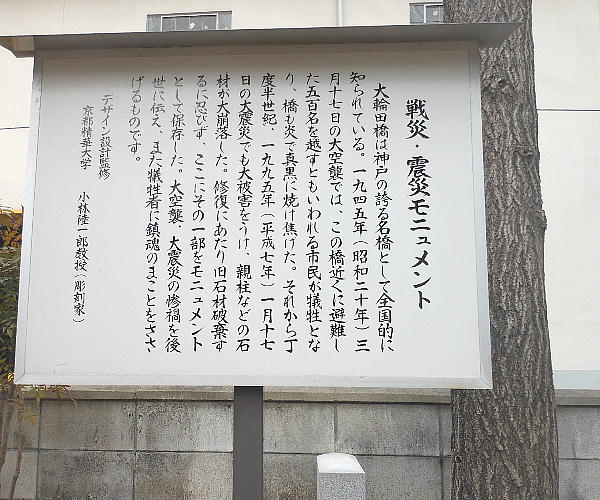 戦災・震災モニュメント
大輪田橋は神戸の誇る名橋として全国的に
知られている。一九四五年(昭和二十年)三
月十七日の大空襲では、この橋近くに避難し
た五百名を越すともいわれる市民が犠牲とな
り、橋も炎で真黒に焼け焦げた。それから丁
度半世紀、一九九五年(平成七年)一月十七
日の大震災でも大被害をうけ、親柱などの石
材が大崩落した。修復にあたり旧石材破棄す
るに忍びず、ここにその一部をモニュメント
として保存した。大空襲、大震災の惨禍を後
世に伝え、また犠牲者に鎮魂のまことをささ
げるものです。
デザイン設計監修
京都精華大学 小林陸一郎教授(彫刻家)